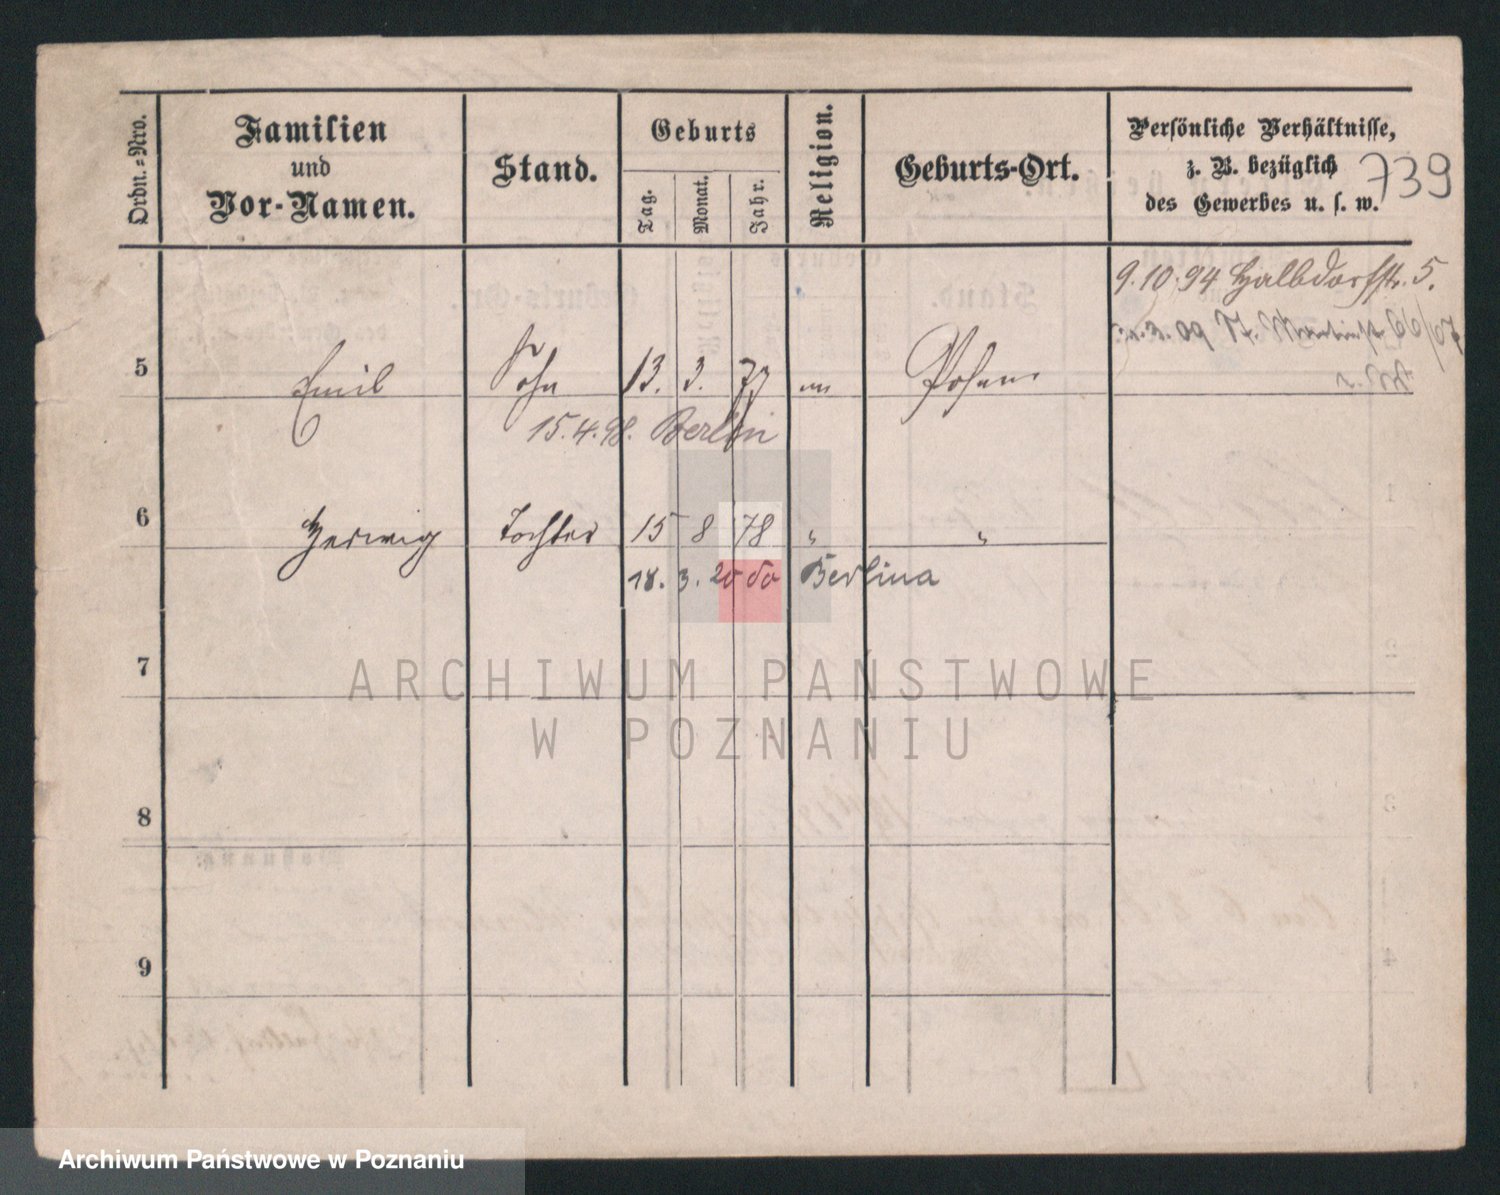 Ordn.=Nro.
Familien
und
Vor-Namen.
Stand.
Geburts
Tag.
Monat.
Jahr.
Religion.
Geburts-Ort.
Persönliche Verhältnisse,
z. B. bezüglich
des Gewerbes u. s. w.
739
9.10.94 Halbdorfstr. 5.
3. 09 St. Martinstr 66/67
5 Emil Sohn 13. 3. 77 Posen
15.4.98. Berlin
6 Hedwig Tochter 15 8 78 " "
18. 3. 20 do Berlina
7
ARCHIWUM PAŃSTWOWE
W POZNANIU
8
9
Archiwum Państwowe w Poznaniu